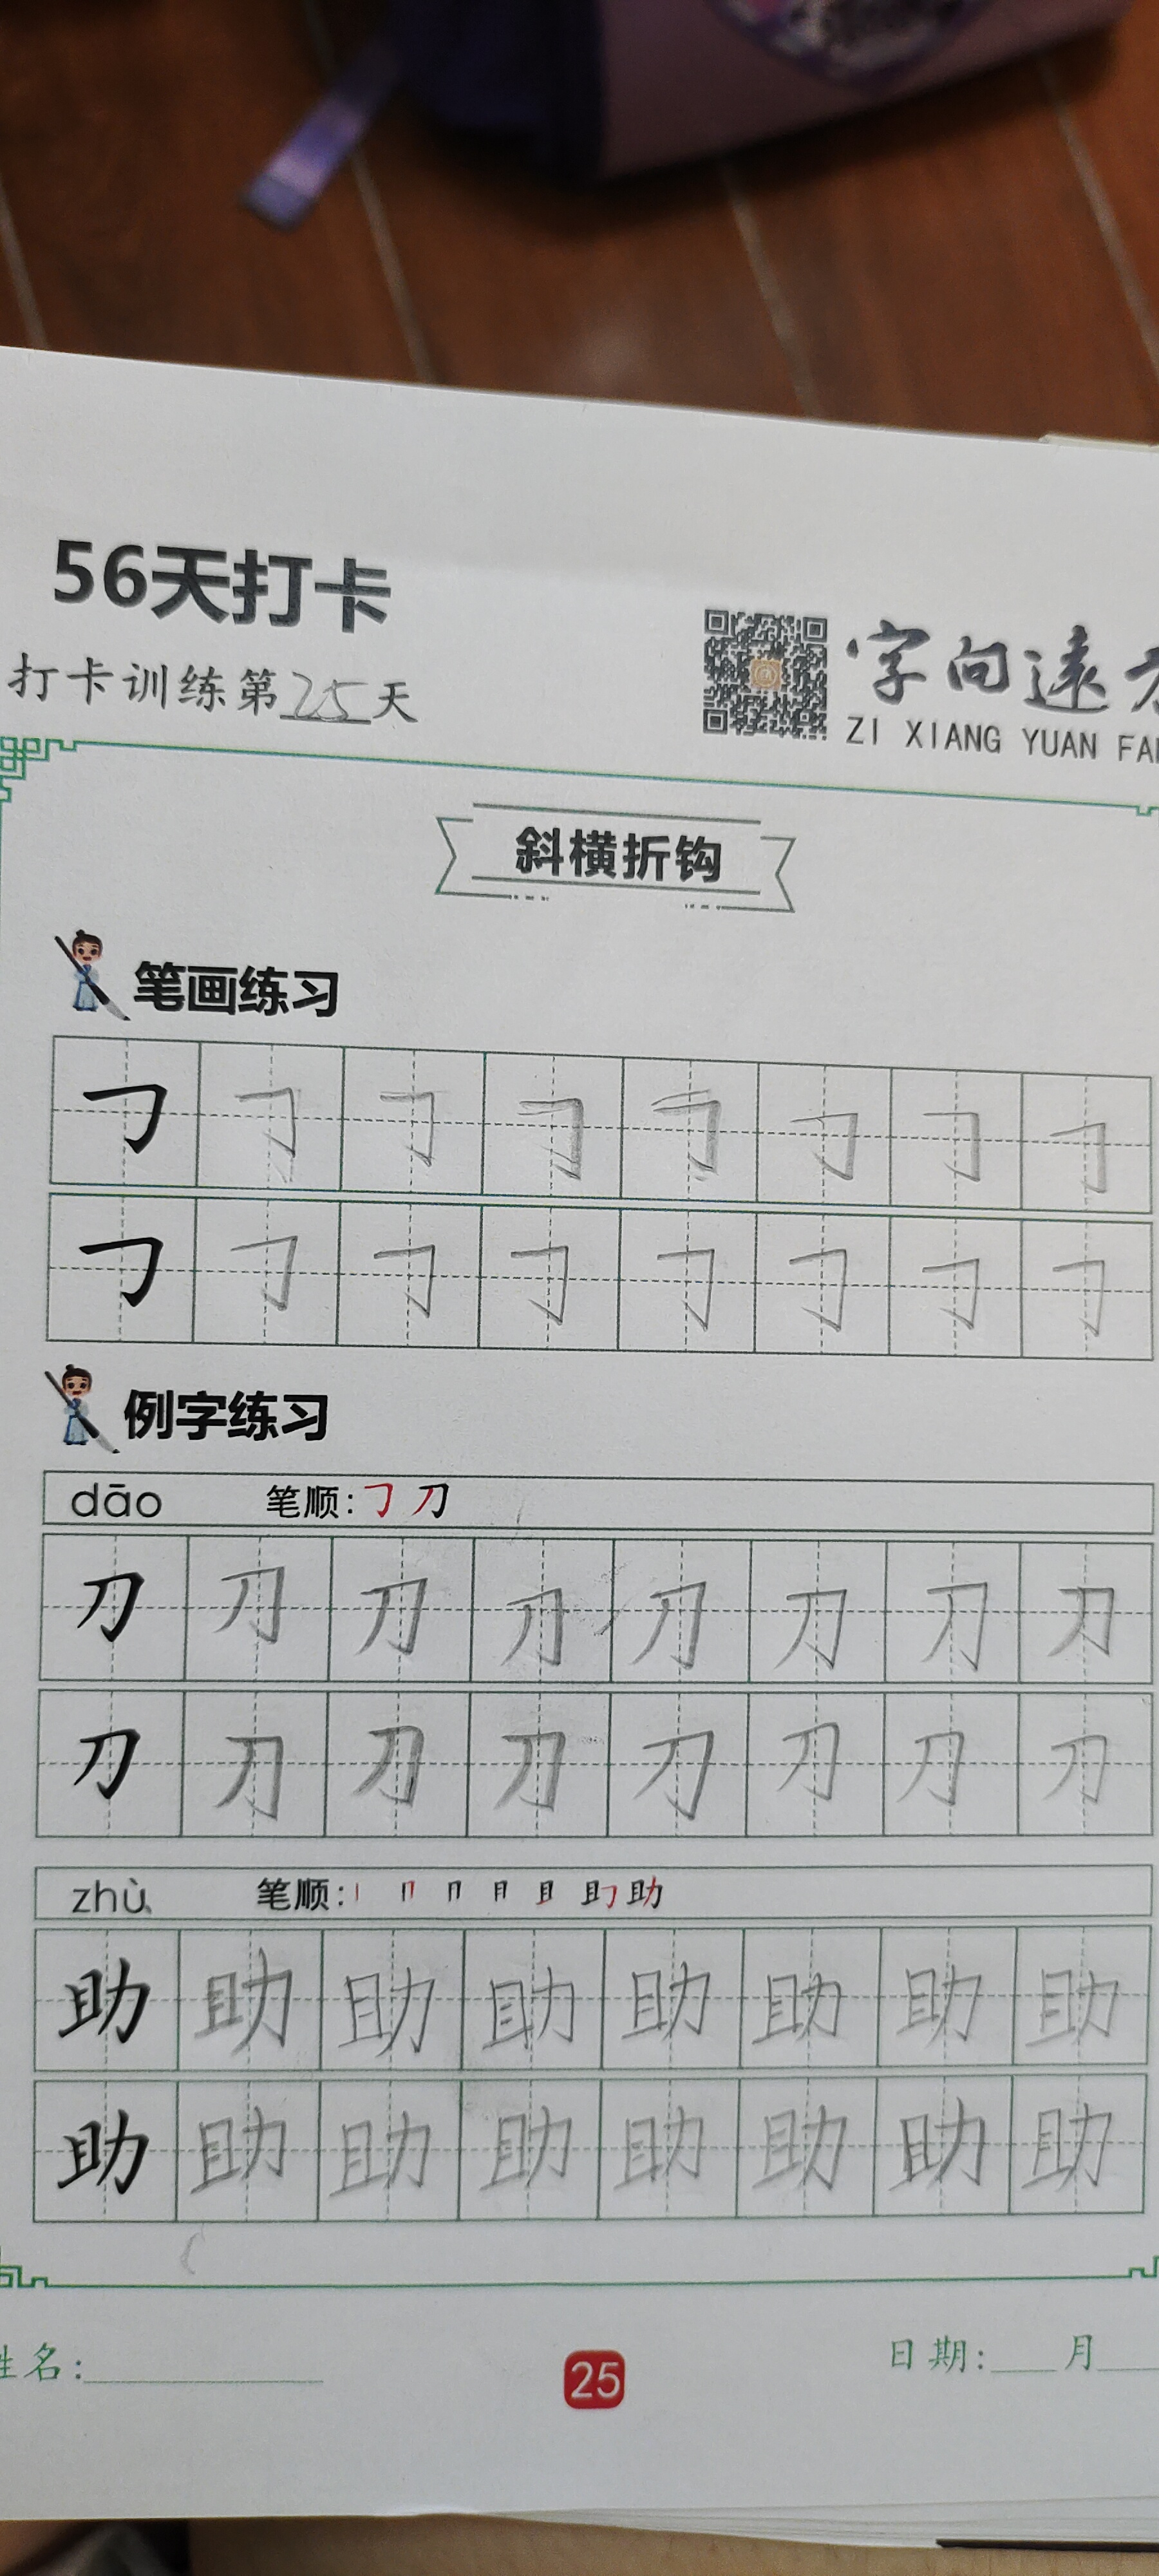 56天打卡
打卡训练第25天
字向遠
ZI XIANG YUAN FA
斜横折钩
笔画练习
㇆ ㇆ ㇆ ㇆ ㇆ ㇆ ㇆ ㇆
㇆ ㇆ ㇆ ㇆ ㇆ ㇆ ㇆ ㇆
例字练习
dāo 笔顺:㇆ 刀
刀 刀 刀 刀 刀 刀 刀 刀
刀 刀 刀 刀 刀 刀 刀 刀
zhù 笔顺:丨 冂 冂 月 且 助
助 助 助 助 助 助 助 助
助 助 助 助 助 助 助 助
姓名:
25
日期: 月